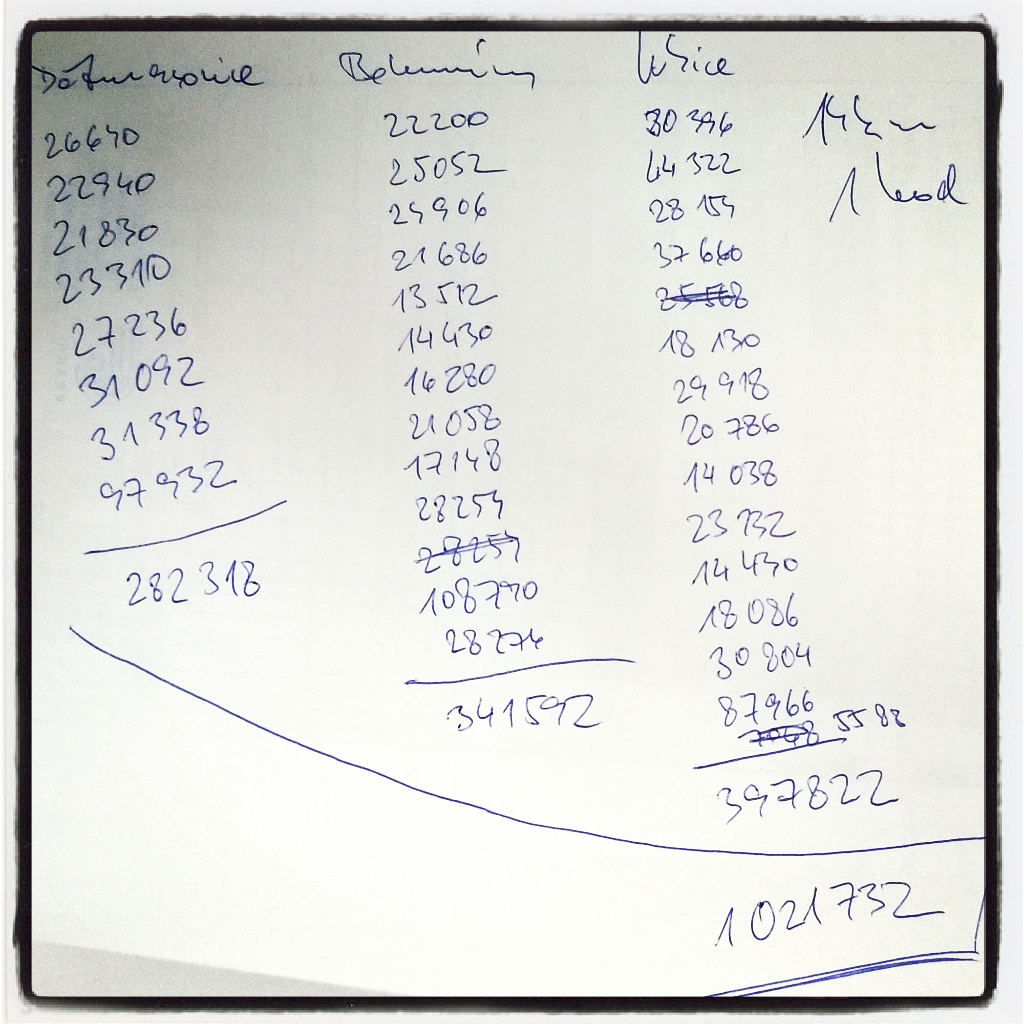 26640
22940
21830
23310
27236
31092
31338
97932
282318
22200
25052
24906
21686
13512
14430
16280
21058
17148
28254
28254
108790
28276
341592
30 396
44 322
28 154
37 660
18 130
29 918
20 786
14 038
23 732
14 430
18 086
30 804
87966
5588
397822
14km
1 bod
1021732